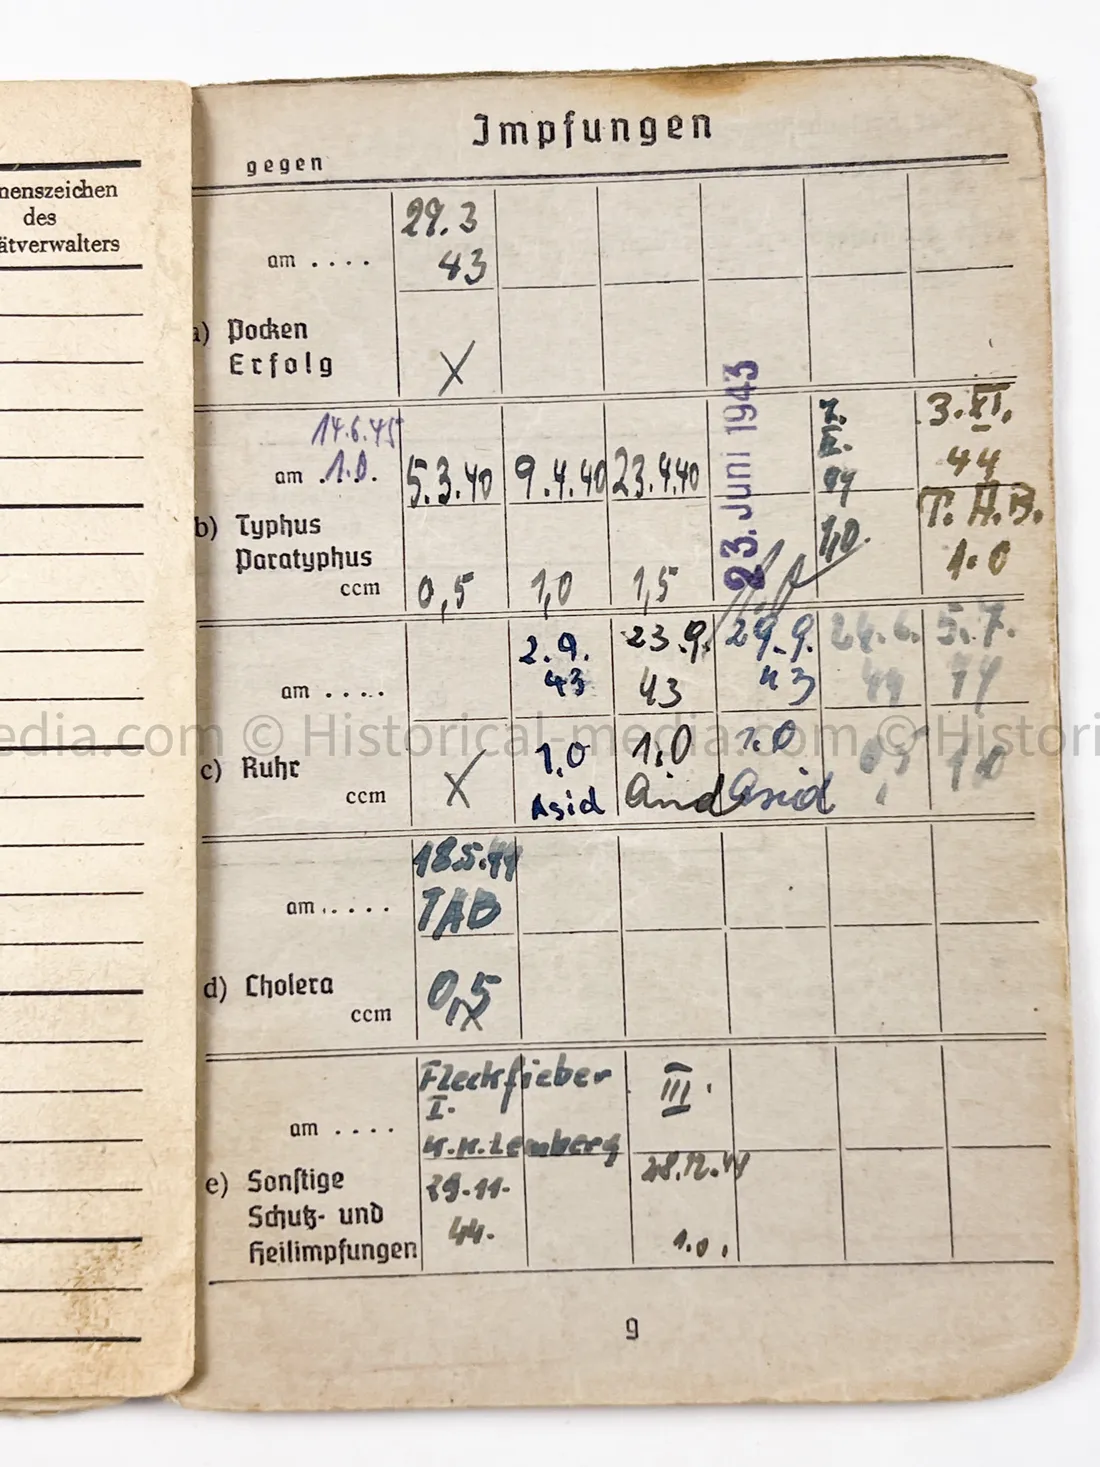 nenszeichen
des
ätverwalters
Impfungen
gegen
29.3
43
am . . . .
a) Pocken
Erfolg
X
14.6.45
am . 1.0.
5.3.40
9.4.40
23.4.40
23. Juni 1943
44
1,0.
3.XI.
44
T.A.B.
1.0
b) Typhus
Paratyphus
ccm
0,5
1,0
1,5
am . . . .
2.9.
43
23.9.
43
29.9.
43
24.6.
44
5.7.
44
c) Ruhr
ccm
X
1,0
Asid
1.0
Asid
1.0
Asid
0,5
1.0
18.5.44
TAB
am . . . . .
d) Cholera
ccm
0,5
X
Fleckfieber
I.
III.
am . . . .
K.K. Lemberg
e) Sonstige
Schutz- und
Heilimpfungen
29.11.
44.
28.12.44
1.0.
9
edia.com © Historical-media.com © Histori